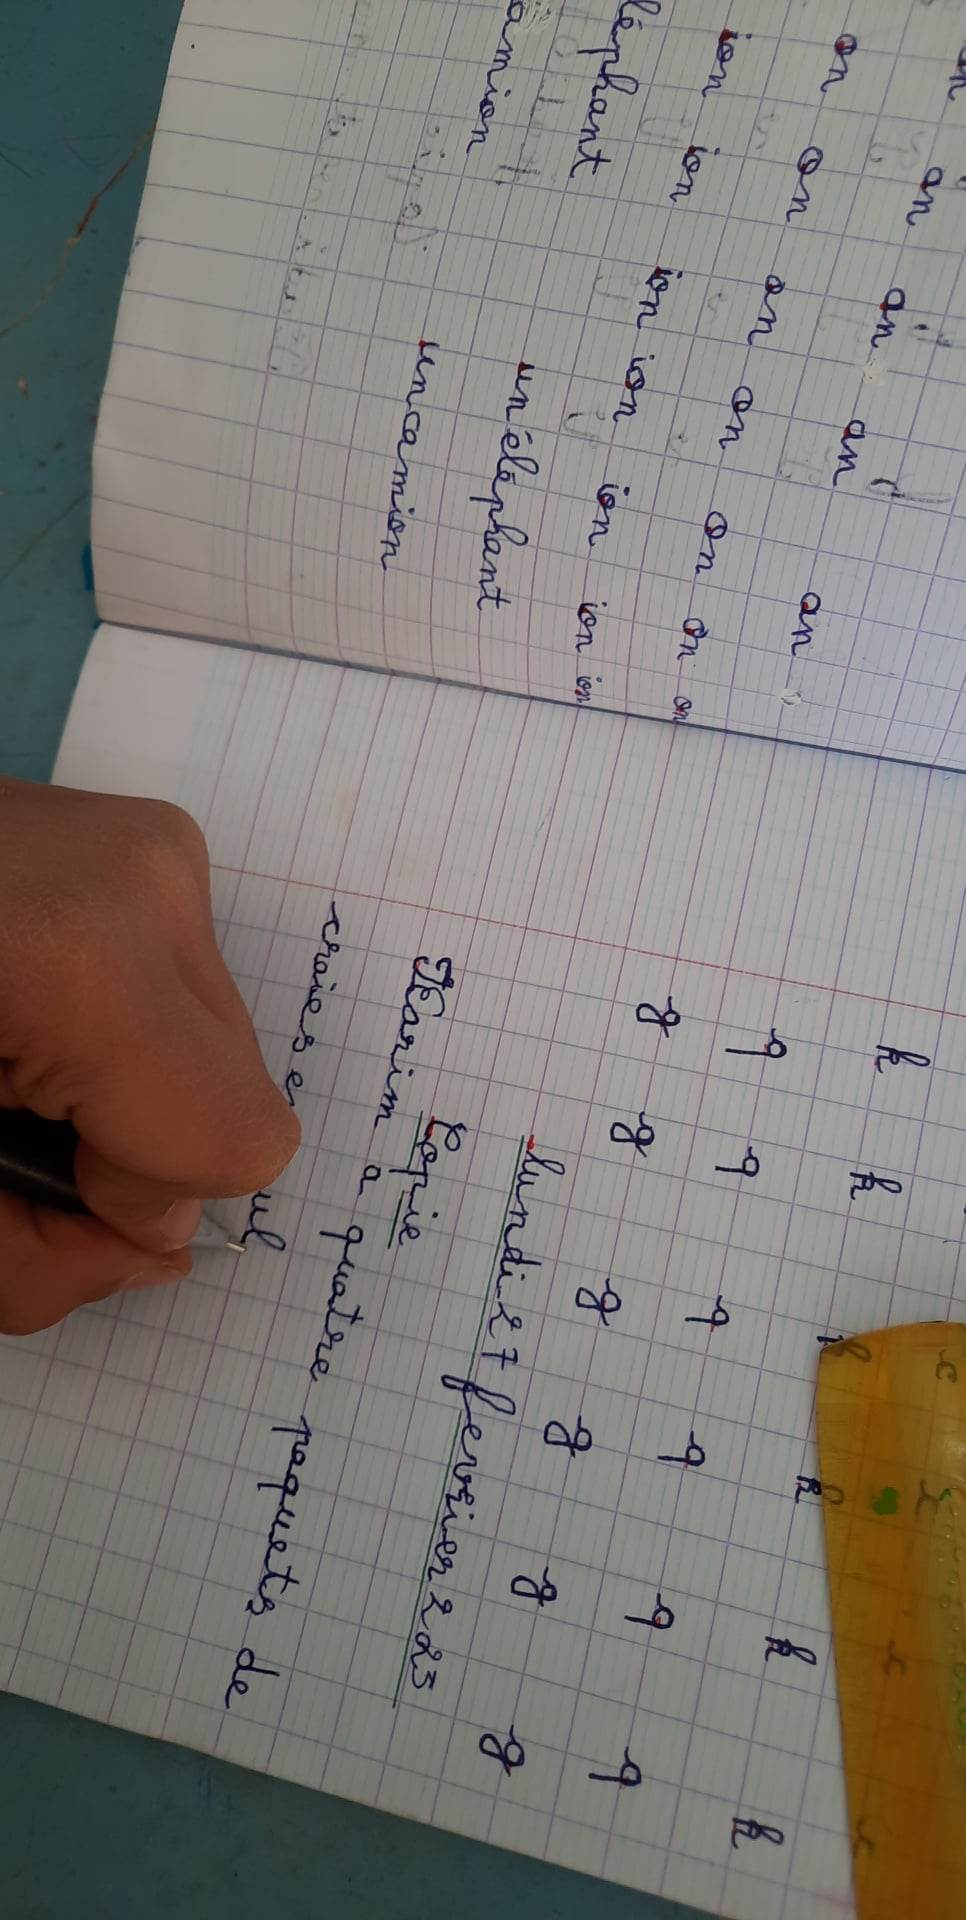 an an an an an
on on on on on on on
ion ion ion ion ion ion ion
un éléphant
un camion
h h h h h h
q q q q q q
g g g g g g
lundi 27 fervrier 2 23
Copie
Karim a quatre paquets de
craies e